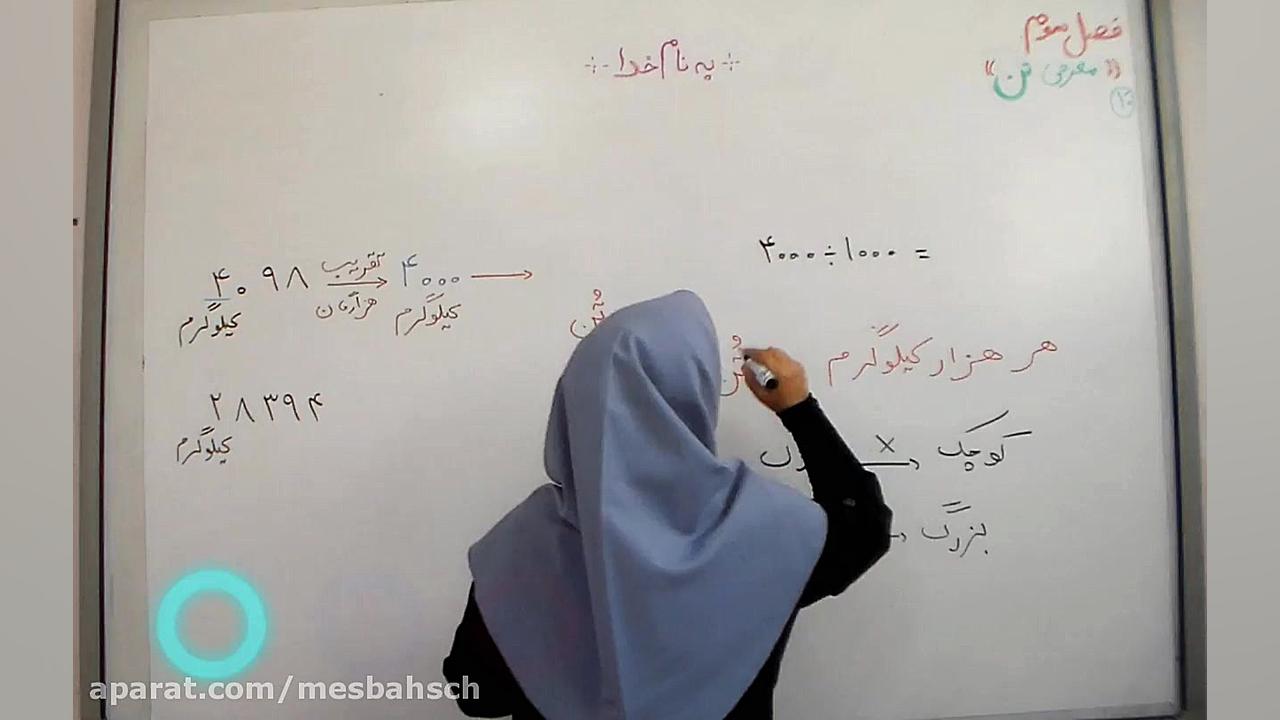 به نام خدا
فصل سوم
« معرفی تن »
۴۰۰۰ ÷ ۱۰۰۰ =
۴۰۹۸ تقریب ۴۰۰۰
کیلوگرم هزارگان کیلوگرم
تُن
هر هزار کیلوگرم
تُن
۲۸۳۹۴
کیلوگرم
کوچک ×
بزرگ
aparat.com/mesbahsch